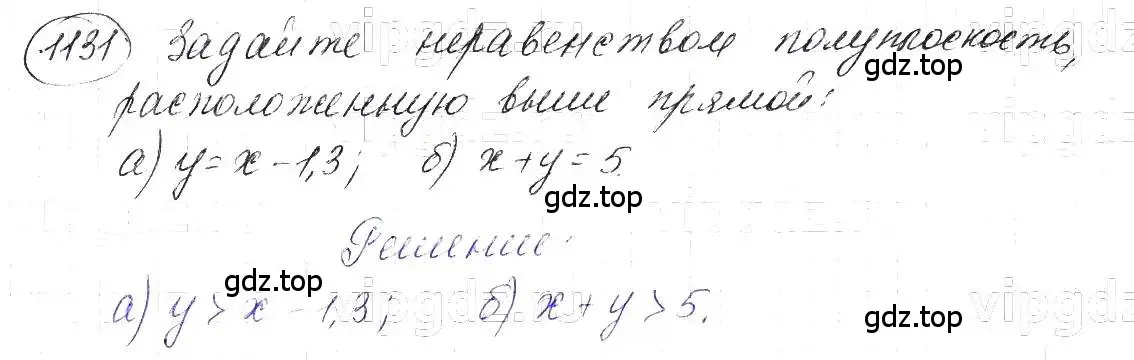 1131 Задайте неравенством полуплоскость,
расположенную выше прямой:
а) y = x - 1,3; б) x + y = 5.
gdz.top
gdz.top
Решение:
gdz.top
gdz.top
а) y > x - 1,3; б) x + y > 5.